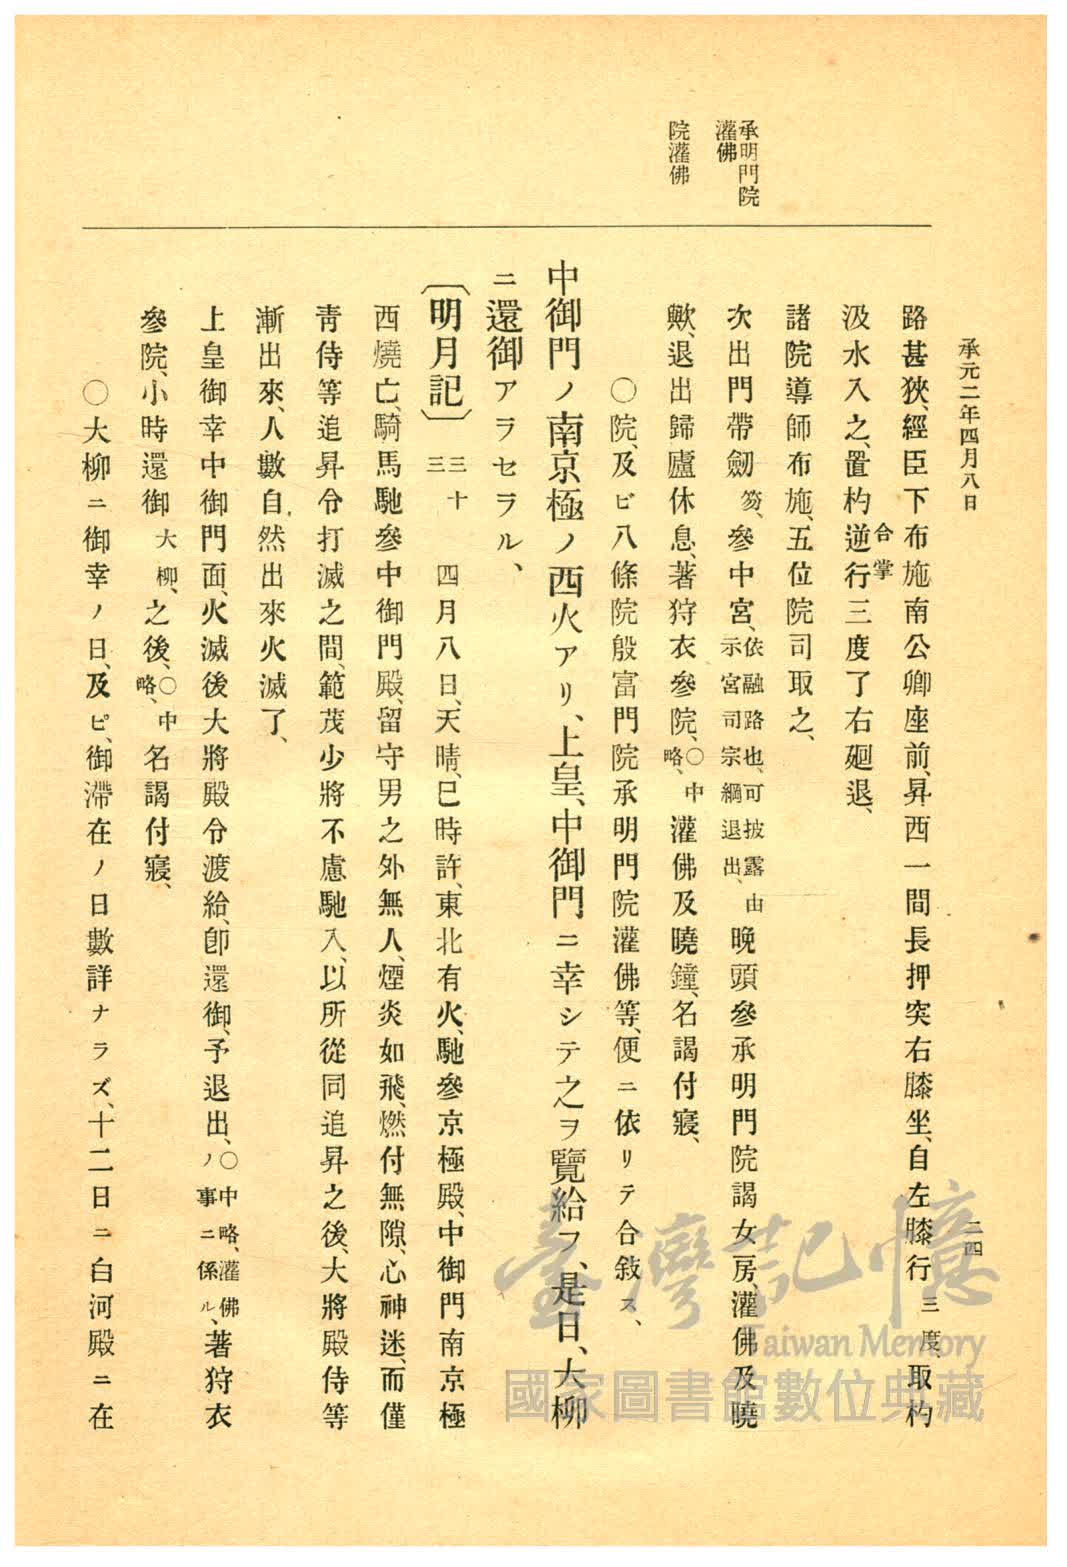 承元二年四月八日
二四
承明門院
灌佛
院灌佛
路甚狹、經臣下布施南公卿座前、昇西一間長押突右膝坐、自左膝行三度、取杓
汲水入之、置杓逆行三度了右廻退、
合掌
諸院導師布施、五位院司取之、
次出門帶劒笏、參中宮、依融路也、可披露由示宮司宗綱退出、晚頭參承明門院謁女房、灌佛及曉
歟、退出歸廬休息、著狩衣參院、〇中略、灌佛及曉鐘、名謁付寢、
〇院、及ビ八條院殷富門院承明門院灌佛等、便ニ依リテ合敍ス、
中御門ノ南京極ノ西火アリ、上皇、中御門ニ幸シテ之ヲ覽給フ、是日、大柳
ニ還御アラセラル、
〔明月記〕三十三 四月八日、天晴、巳時許、東北有火、馳參京極殿、中御門南京極
西燒亡、騎馬馳參中御門殿、留守男之外無人、煙炎如飛、燃付無隙、心神迷、而僅
靑侍等追昇令打滅之間、範茂少將不慮馳入、以所從同追昇之後、大將殿侍等
漸出來、人數自然出來火滅了、
上皇御幸中御門面、火滅後大將殿令渡給、卽還御、予退出、〇中略、灌佛ノ事ニ係ル、著狩衣
參院、小時還御大柳、之後、〇中略、名謁付寢、
〇大柳ニ御幸ノ日、及ビ、御滯在ノ日數詳ナラズ、十二日ニ白河殿ニ在
臺灣記憶
Taiwan Memory
國家圖書館數位典藏